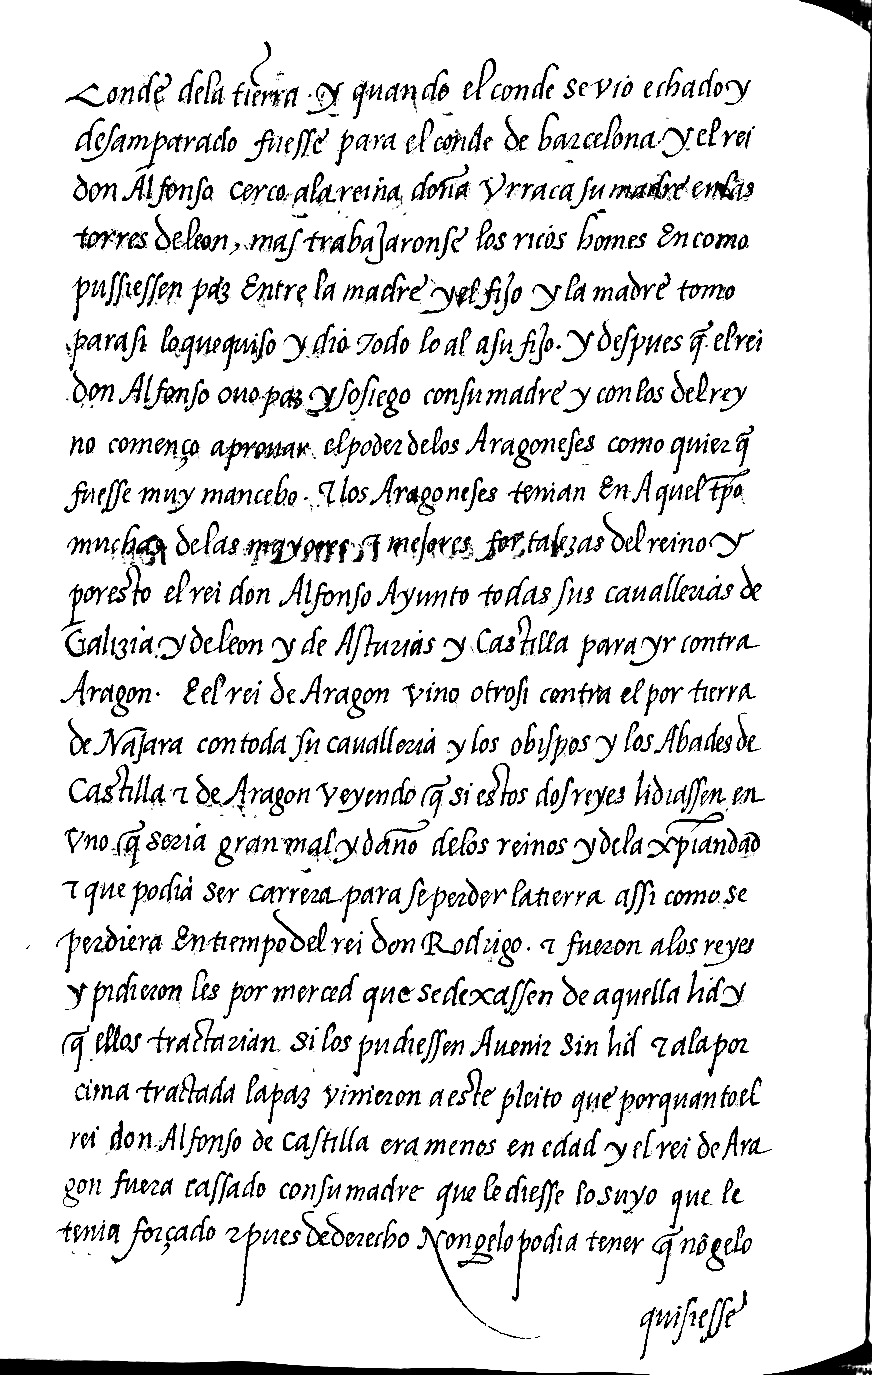 Conde dela tierra · y quando el conde se vio echado y
desamparado fuesse para el conde de barcelona · y el rei
don Alfonso cerco ala reina doña Vrraca su madre en las
torres de leon, mas trabajaronse los ricos homes En como
pussiessen paz Entre la madre y el fijo y la madre tomo
para si lo que quiso y dio Todo lo al a su fijo · y despues q̃ el rei
don Alfonso ouo paz y sosiego con su madre y con los del rey
no començo a prouar el poder delos Aragoneses como quier q̃
fuesse muy mancebo · ⁊ los Aragoneses tenian En Aquel tp̃o
muchas de las mayores ⁊ mejores fortalezas del reino y
por esto el rei don Alfonso Ayunto todas sus cauallerias de
Galizia y de leon y de Asturias y Castilla para yr contra
Aragon · E el rei de Aragon vino otrosi contra el por tierra
de Najara con toda su caualleria y los obispos y los Abades de
Castilla ⁊ de Aragon veyendo q̃ si estos dos reyes lidiassen en
vno q̃ seria gran mal y daño delos reinos y de la xp̃iandad
⁊ que podia ser carrera para se perder la tierra assi como se
perdiera En tiempo del rei don Rodrigo · ⁊ fueron alos reyes
y pidieron les por merced que se dexassen de aquella lid y
q̃ ellos tractarian si los pudiessen Auenir sin lid ⁊ ala por
cima tractada la paz vinieron a este pleito que por quanto el
rei don Alfonso de Castilla era menos en edad y el rei de Ara
gon fuera cassado con su madre que le diesse lo suyo que le
tenia forçado ⁊ pues de derecho Non gelo podia tener q̃ nõ gelo
quisiesse